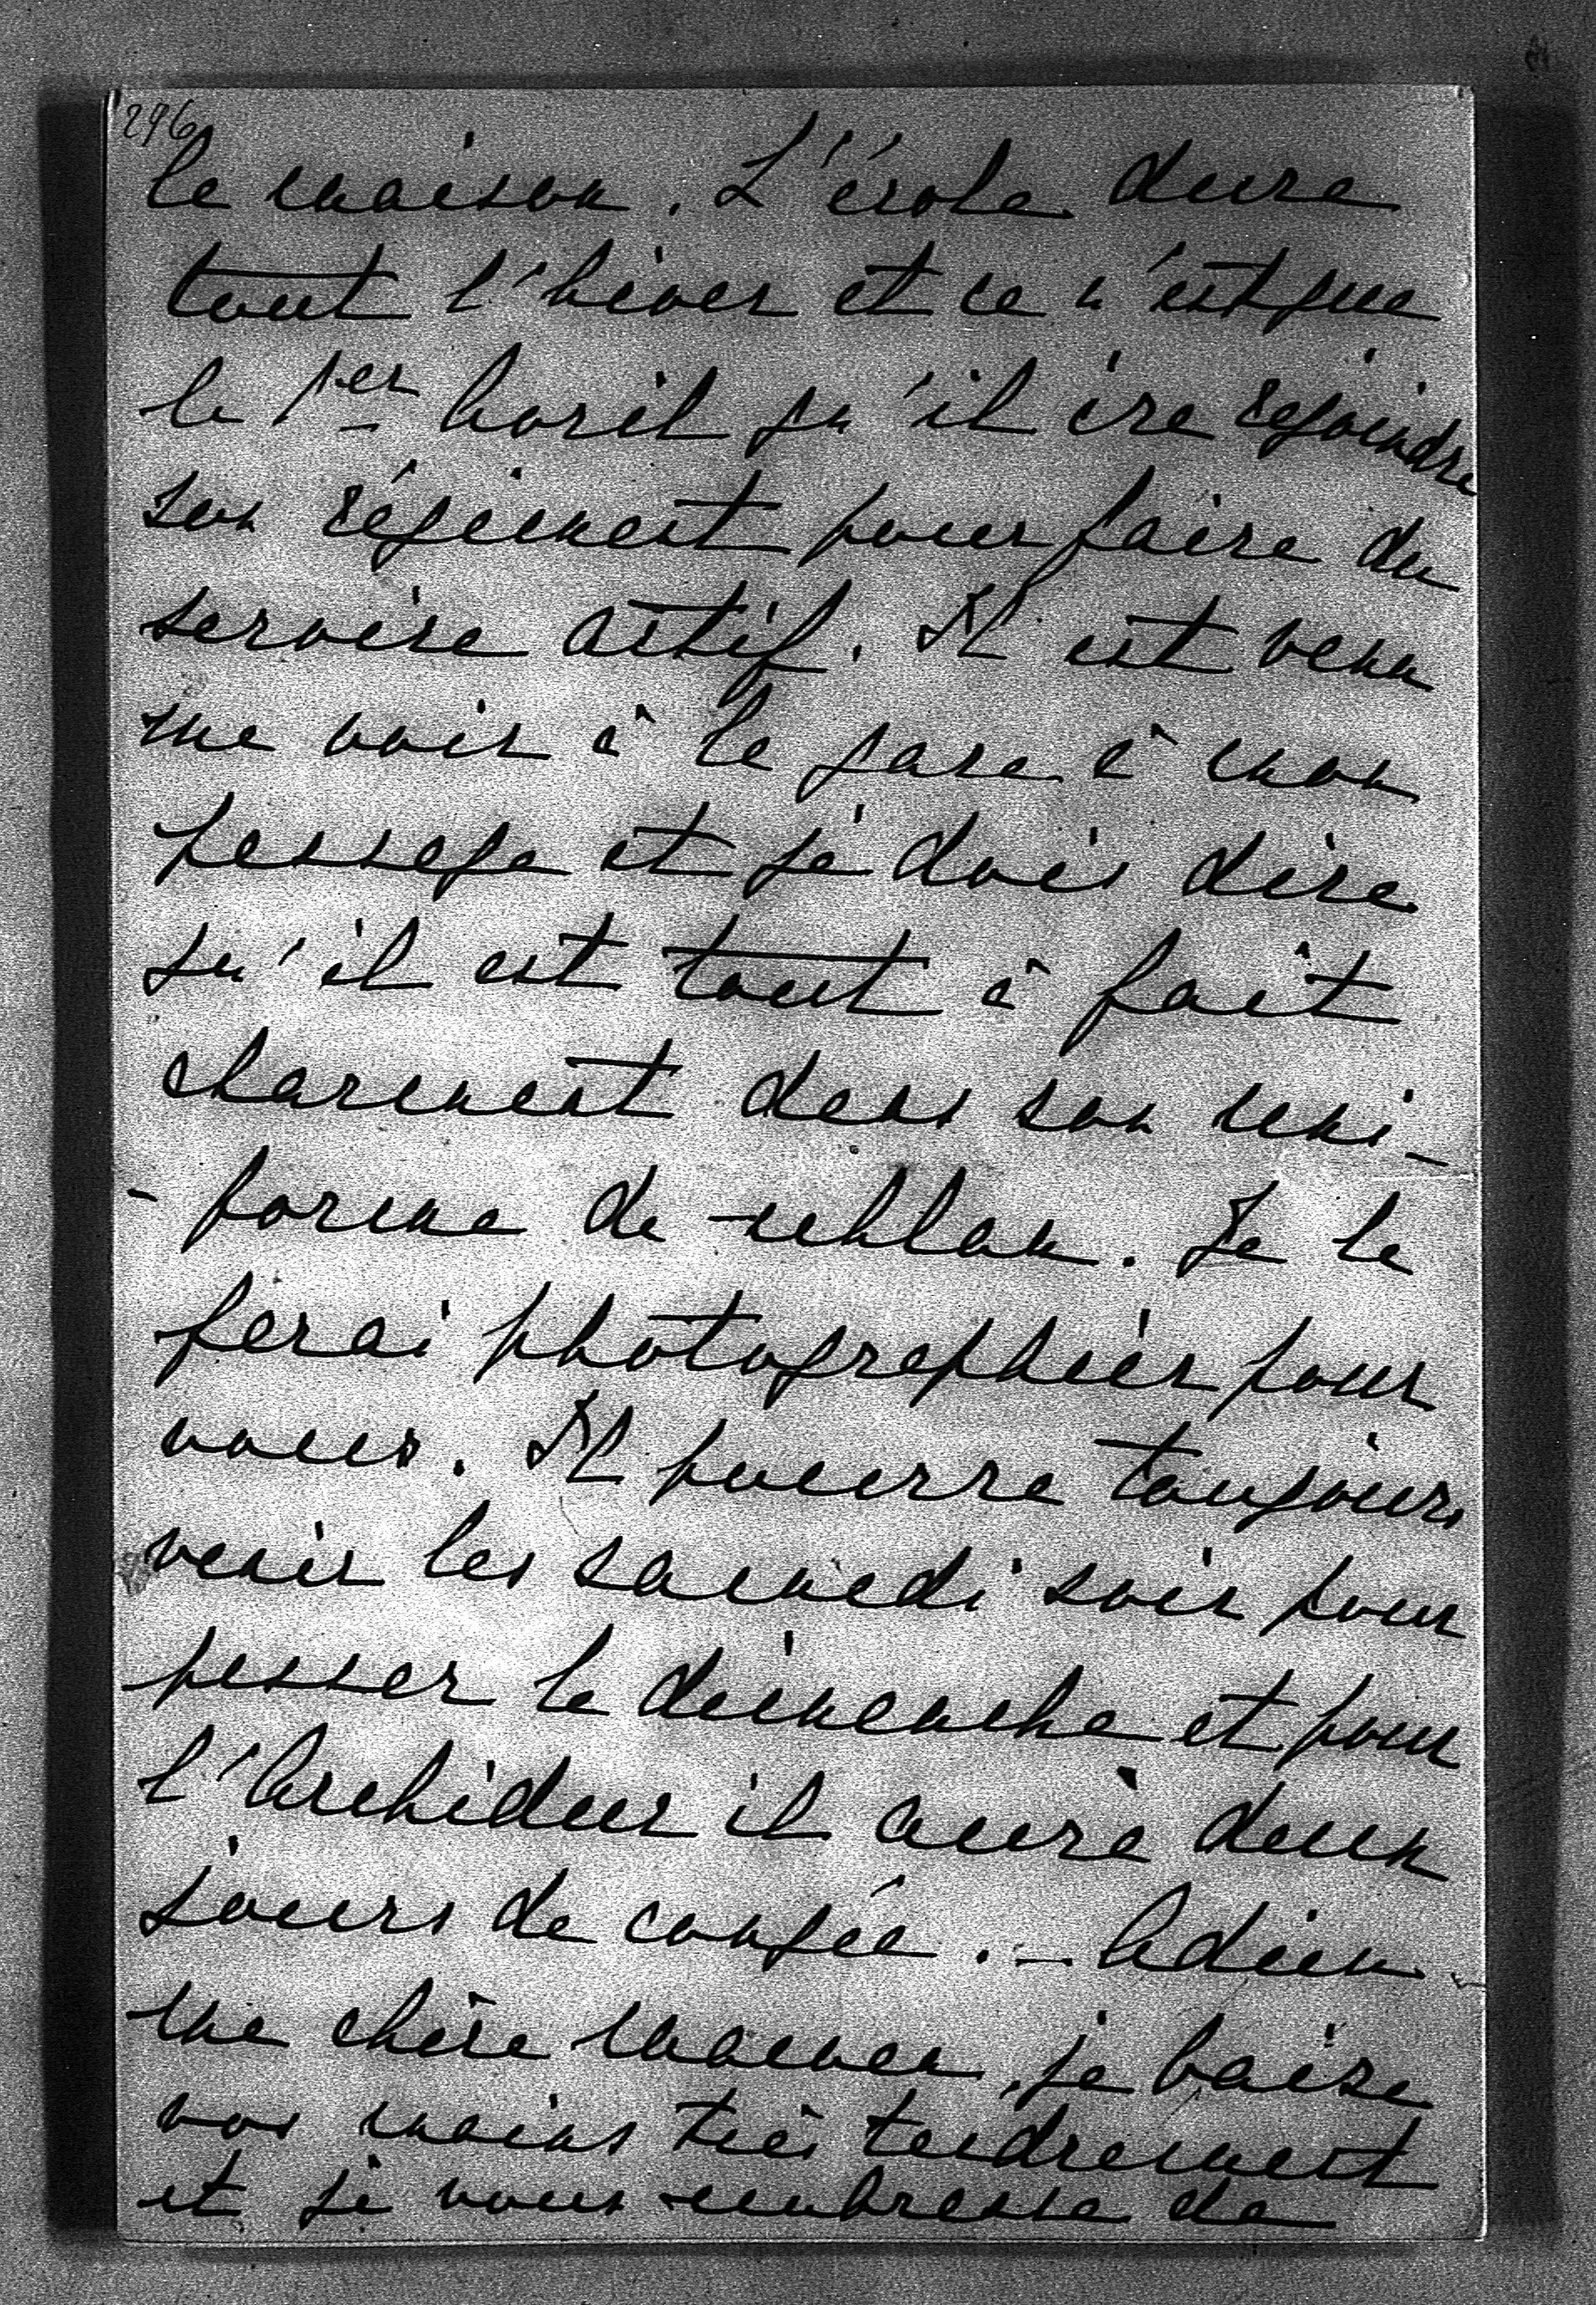 296
la maison. L'école dure
tout l'hiver et ce n'est que
le 1er Avril qu'il ira rejoindre
son régiment pour faire du
service actif. Il est venu
me voir à la gare à mon
passage et je dois dire
qu'il est tout à fait
charmant dans son uni-
- forme de uhlan. Je le
ferai photographier pour
vous. Il pourra toujours
venir les samedi soir pour
passer le dimanche et pour
l'Archiduc il aura deux
jours de congée. - Adieu
ma chère maman, je baise
vos mains très tendrement
et je vous embrasse de